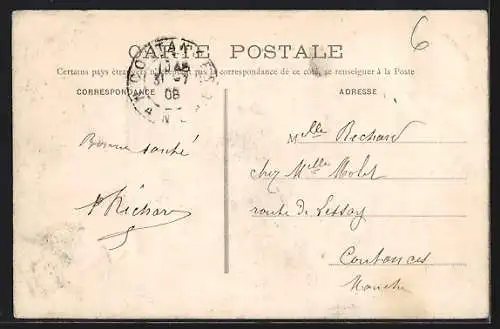 6
CARTE POSTALE
Certains pays étrangers n'acceptent pas la correspondance de ce côté, se renseigner à la Poste
CORRESPONDANCE
ADRESSE
31 -7
08
Bonne santé
Melle Bechard
chez Melle Molet
route de Lessay
Coutances
Manche